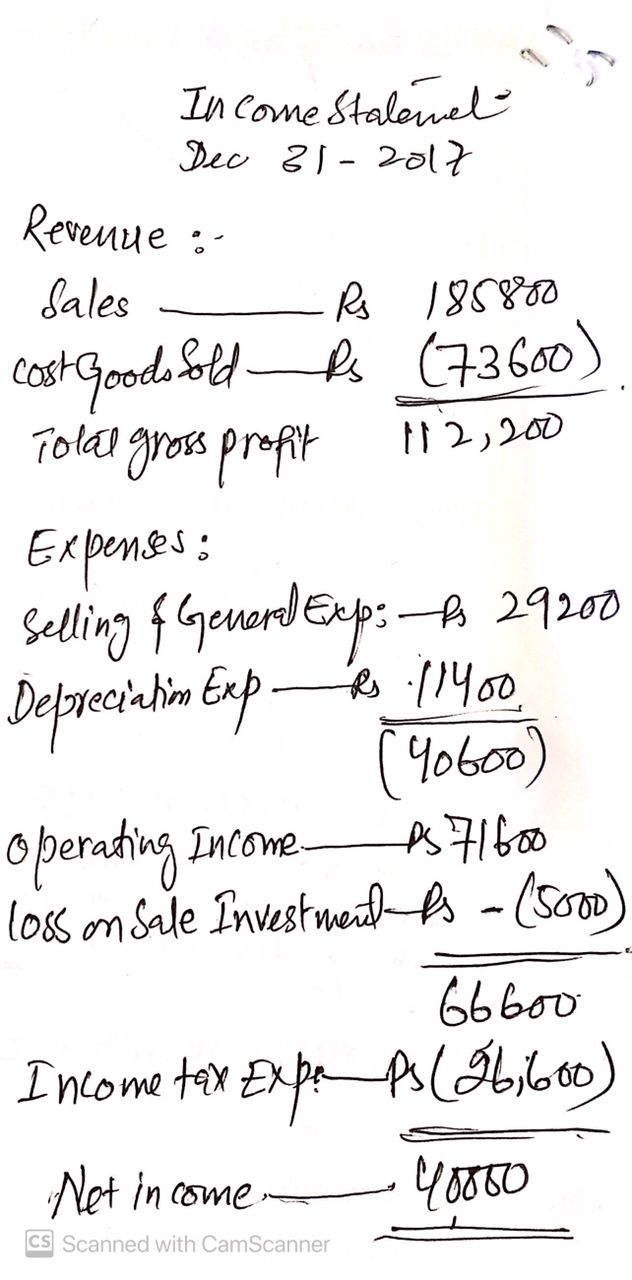 Income Statemel
Dec 31 - 2017
Revenue :-
Sales Rs 185800
Cost Goods Sold Rs (73600)
Total gross profit 112,200
Expenses :
Selling & General Exp: Rs 29200
Depreciation Exp Rs 11400
(40600)
Operating Income Rs 71600
loss on Sale Investment Rs - (5000)
66600
Income tax Exp: Rs (26,600)
Net income 40000
CS Scanned with CamScanner